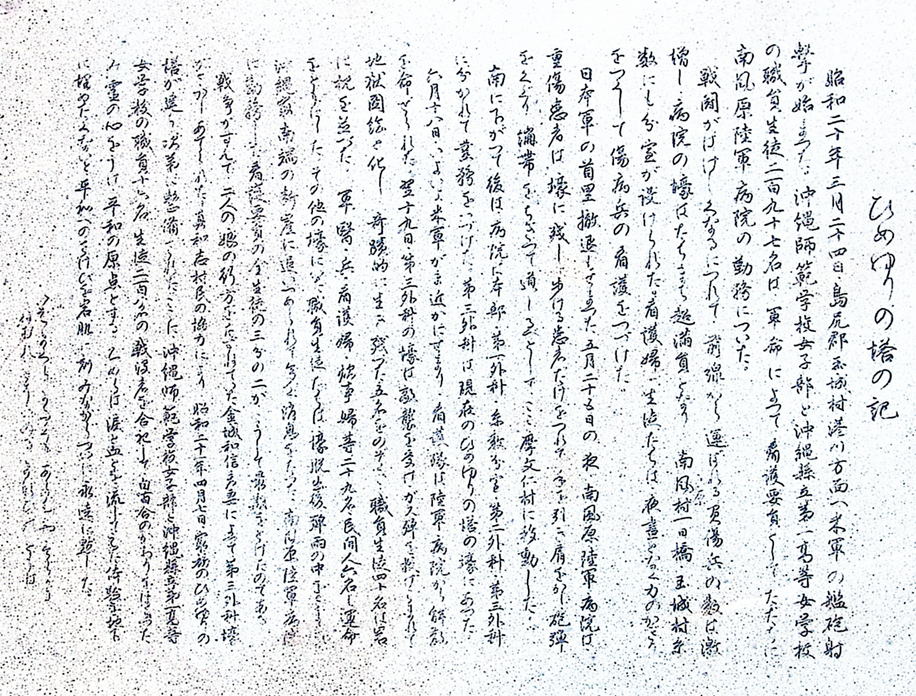 ひめゆりの塔の記
昭和二十年三月二十四日島尻郡玉城村港川方面へ米軍の艦砲射
撃が始まった。沖縄師範学校女子部と沖縄縣立第一高等女学校
の職員生徒二百九十七名は軍命によって看護要員としてただちに
南風原陸軍病院の勤務についた
戦闘がはげしくなるにつれて前線から運ばれる負傷兵の数は激
増し病院の壕はたちまち超満員となり南風村一日橋玉城村糸
数にも分室が設けられた看護婦生徒たちは夜晝となく力のかぎり
をつくして傷病兵の看護をつづけた
日本軍の首里撤退もせまった五月二十五日の夜南風原陸軍病院は
重傷患者は壕に残し歩ける患者だけをつれて手を引き肩をかし砲弾
をくぐり繃帯をちぎって道しるべとしてここ摩文仁村に移動した
南に下がって後は病院は本部第一外科糸数分室第二外科第三外科
に分かれて業務をつづけた第三外科は現在のひめゆりの塔の壕にあった
六月十八日いよいよ米軍がま近かにせまり看護隊は陸軍病院から解散
を命ぜられた翌十九日第三外科の壕は敵襲を受けガス弾を投げこまれて
地獄圖絵と化し奇蹟的に生き残った五名をのぞき職員生徒四十名は岩
に枕を並べた軍醫兵看護婦炊事婦等二十九名民間人六名も運命
をともにした。その他の壕にいた職員生徒たちは壕脱出後弾雨の中を
沖縄最南端の断崖に追いつめられて多く消息をたった南風原陸軍病院
に勤務した看護要員の全生徒の三分の二がこうして最期をとげたのである
戦争がすんで二人の娘の行方をたずねていた金城和信夫妻によって第三外科壕
がさがしあてられた真和志村民の協力により昭和二十一年四月七日最初のひめゆりの
塔が建ち次第に整備されたここに沖縄師範学校女子部と沖縄縣立第一高等
女学校の職員十六名生徒二百名の戦没者を合祀して白百合のかおりをはなった
み霊の心をうけ平和の原点とする乙女らは涙と血を流してえた体験を地下
に埋めたくないと平和へのさけびを岩肌に刻みながらついに永遠に黙した